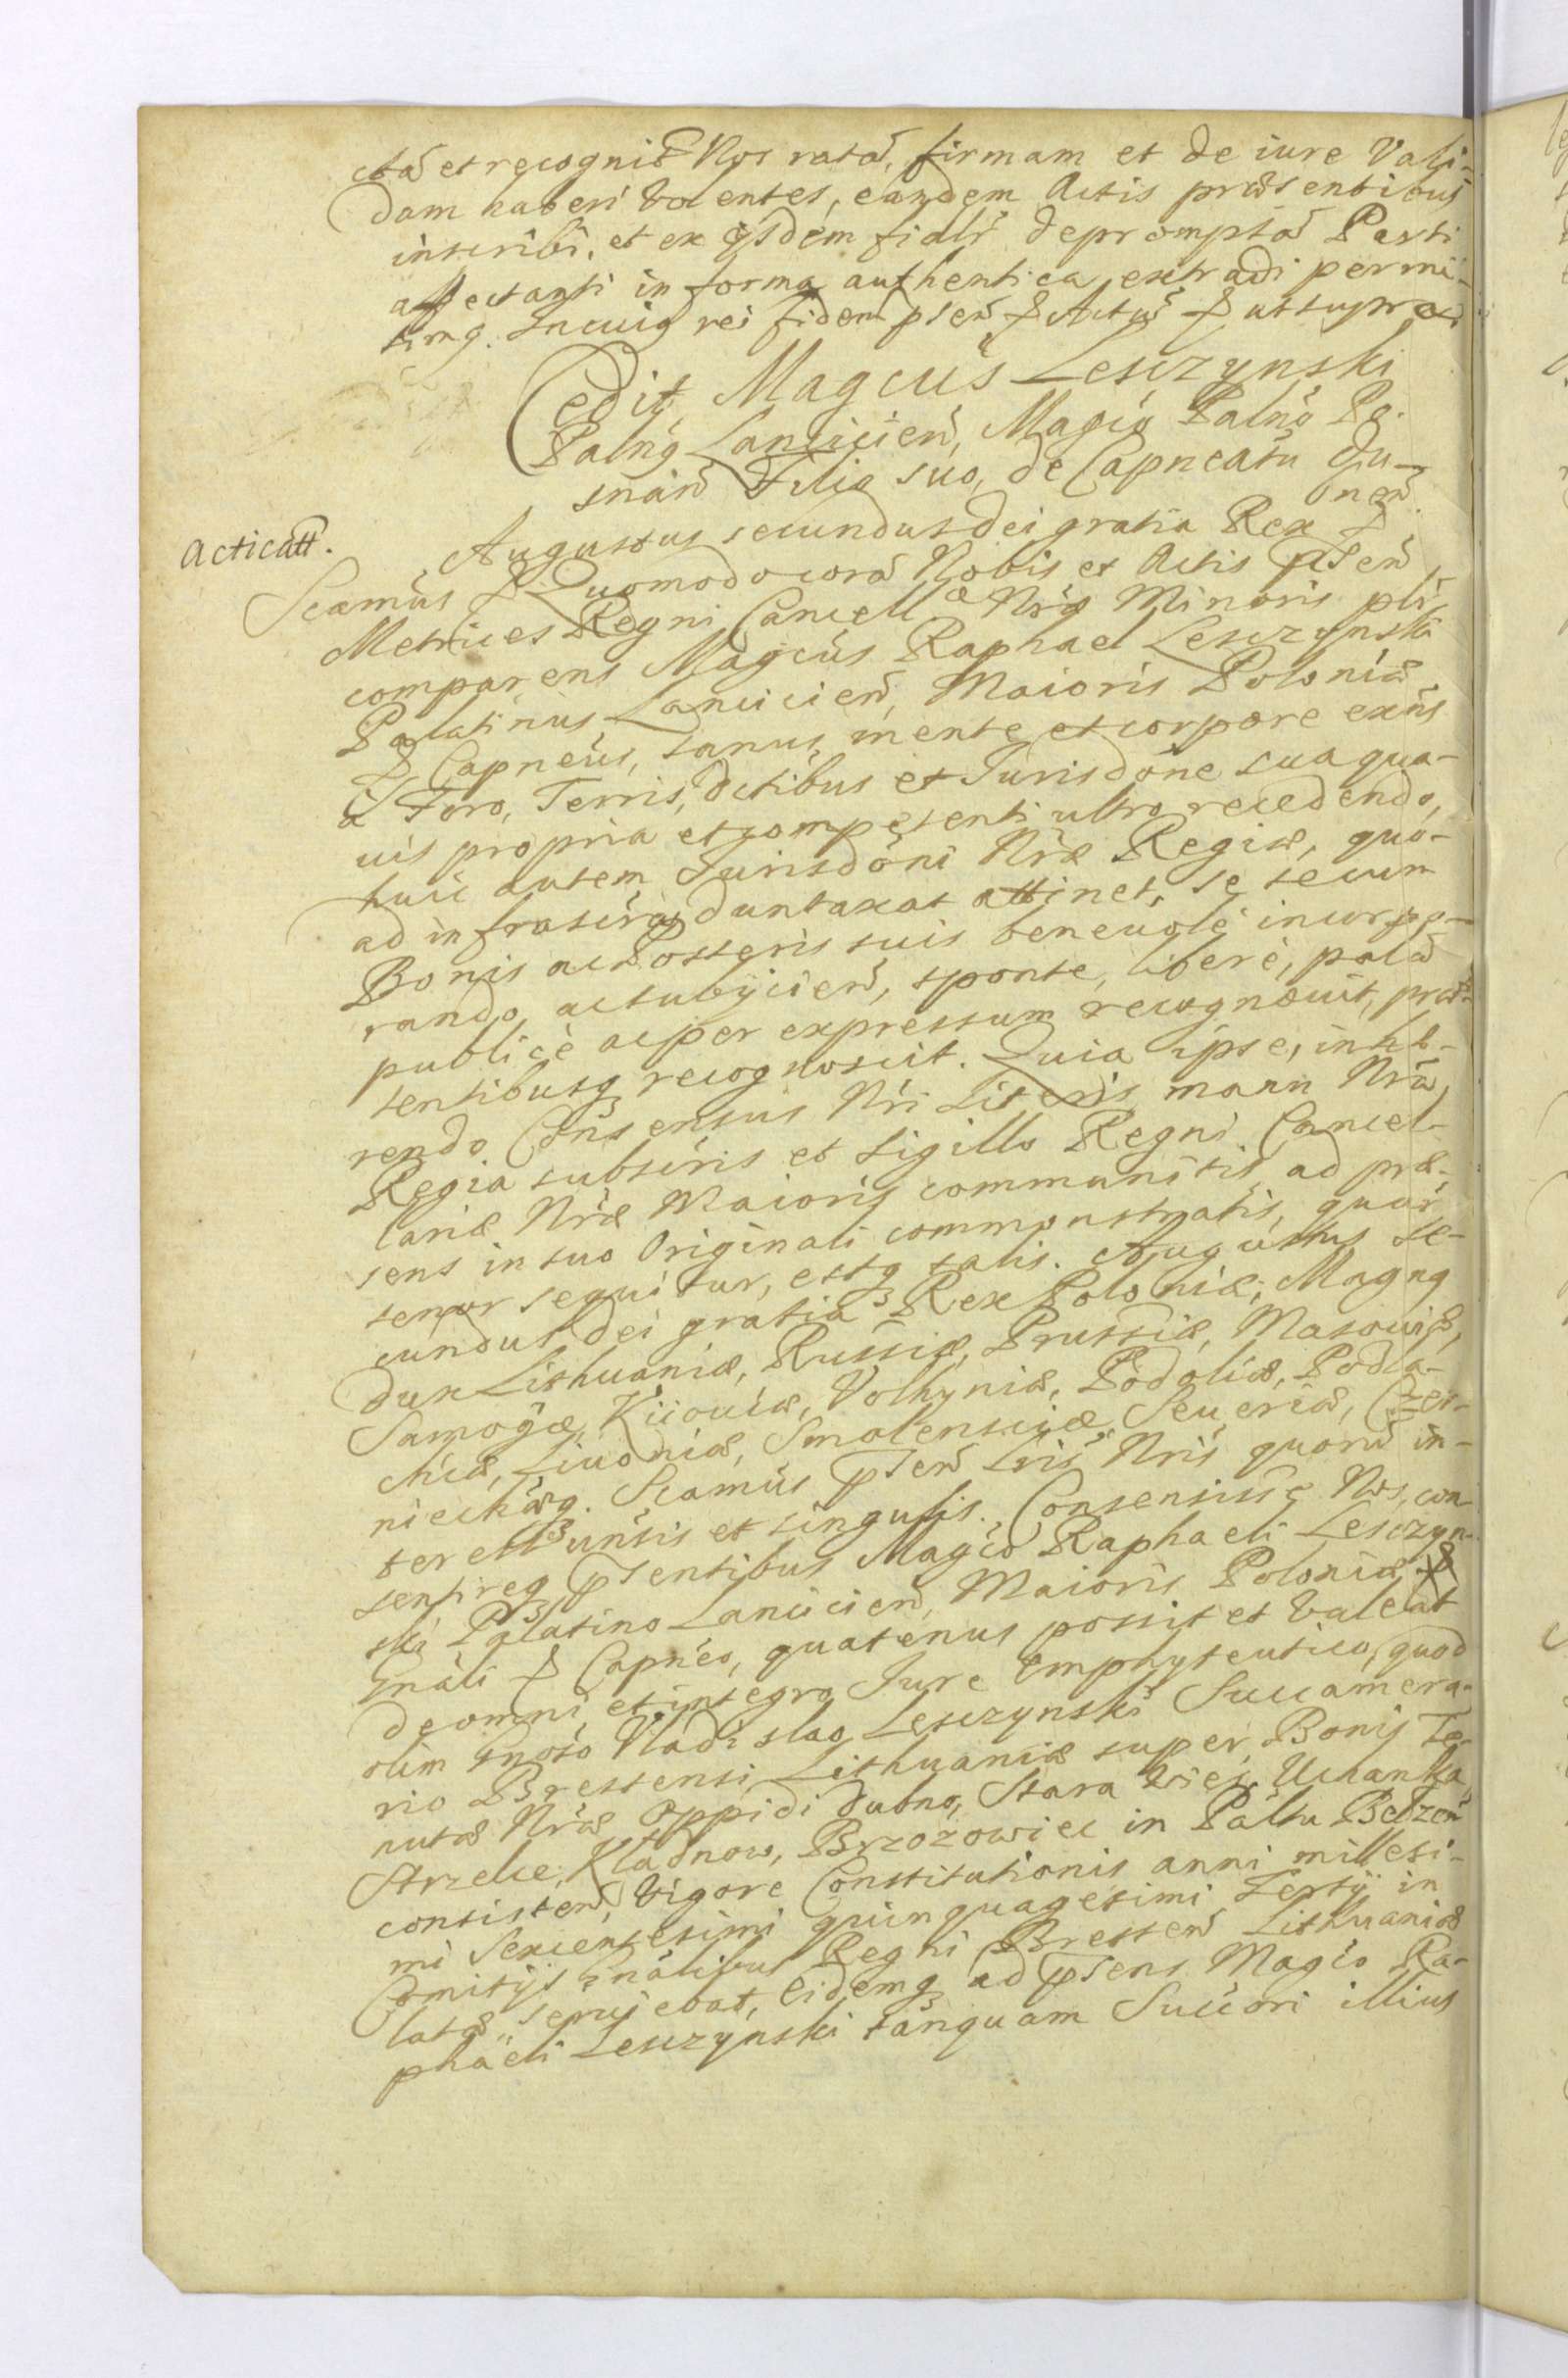 ctā et recognit̄ Nos ratā, firmam et de iure Vali-
dam haberi volentes, eandem Actis præsentibus
inscribi, et ex ijsdem fidlr̄ depromptā Parti
affectanti in forma authentica extradi permi-
simq. In cuiq rei fidem psen̄ & Actuš & ut supra
Cedit Magcus Lesczynski
Palnq Lancicien̄, Magco Palno Po-
snan̄ Filio suo, de Capneatu Du-
bnen̄
Acticatt.
Augustus secundus dei gratia Rex &
Scamus & Quomodo corā Nobis et Actis psen̄
Metrices Regni Cancell̄æ Nr̄æ Minoris plr̄
comparens Magcus Raphael Lesczynski
Palatinus Lancicien̄, Maioris Poloniæ
& Capneus, sanus mente et corpore exn̄s
a Foro, Terris, dctibus et Jurisdone sua qua-
uis propria et competenti ultro recedendo,
huic autem Jurisdoni Nr̄æ Regiæ, quo-
ad infrascr̄a duntaxat attinet, se secum
Bonis ac Posteris suis beneuole incorpo-
rando ac subijcien̄, sponte, liberè, palā
publicè ac per expressum recognouit, præ-
sentibusq recognoscit. Quia ipse, inhæ-
rendo Consensus Nr̄i Literis manu Nr̄ā
Regia subscr̄is et Sigillo Regni Cancel-
lariæ Nr̄æ Maioris communitis, ad præ-
sens in suo Originali commonstratis, quar̄
tenor sequitur, estq talis. Augustus Se-
cundus Dei gratia Rex Poloniæ, Magnq
dux Lithuaniæ, Russiæ, Prussiæ, Masouiæ,
Samogæ, Kijouiæ, Volhyniæ, Podoliæ, Podla-
chiæ, Liuoniæ, Smolensciæ, Seueriæ, Czer-
niechāq. Scamus psen̄ Lris Nr̄is quorū in-
terest unis et singulis. Consensisse Nos, con-
sentireq psentibus Magco Raphaeli Lesczyn-
ski Palatino Lancicien̄, Maioris Poloniæ &
Gnali & Capneo, quatenus possit et valeat
de omni et integro Jure Emphyteutico, quod
olim Gnoso Vladislao Lesczynski Succamera-
rio Brestensi Lithuaniæ super Bonis Te-
nutæ Nr̄æ Oppidi Dubno, Stara Wieś, Uchanka
Strzelce, Kladnow, Brzozowiec in Paltu Belzen̄
consisten̄, Vigore Constitutionis anni millesi-
mi Sexcentesimi quinquagesimi Tertij in
Comitijs Gnalibus Regni Bresten̄ Lithuaniæ
latæ seruiebat, Eidemq ad psens Magco Ra-
phaeli Lesczynski tanquam Succori illius